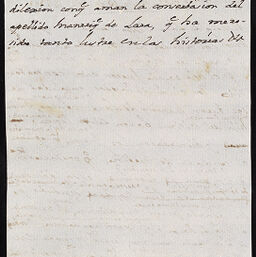 dilexion conq̃ aman la conservasion del
apellido Manrriq̃ de Lara, q̃ ha mere-
sido tanto lustre en las historias de